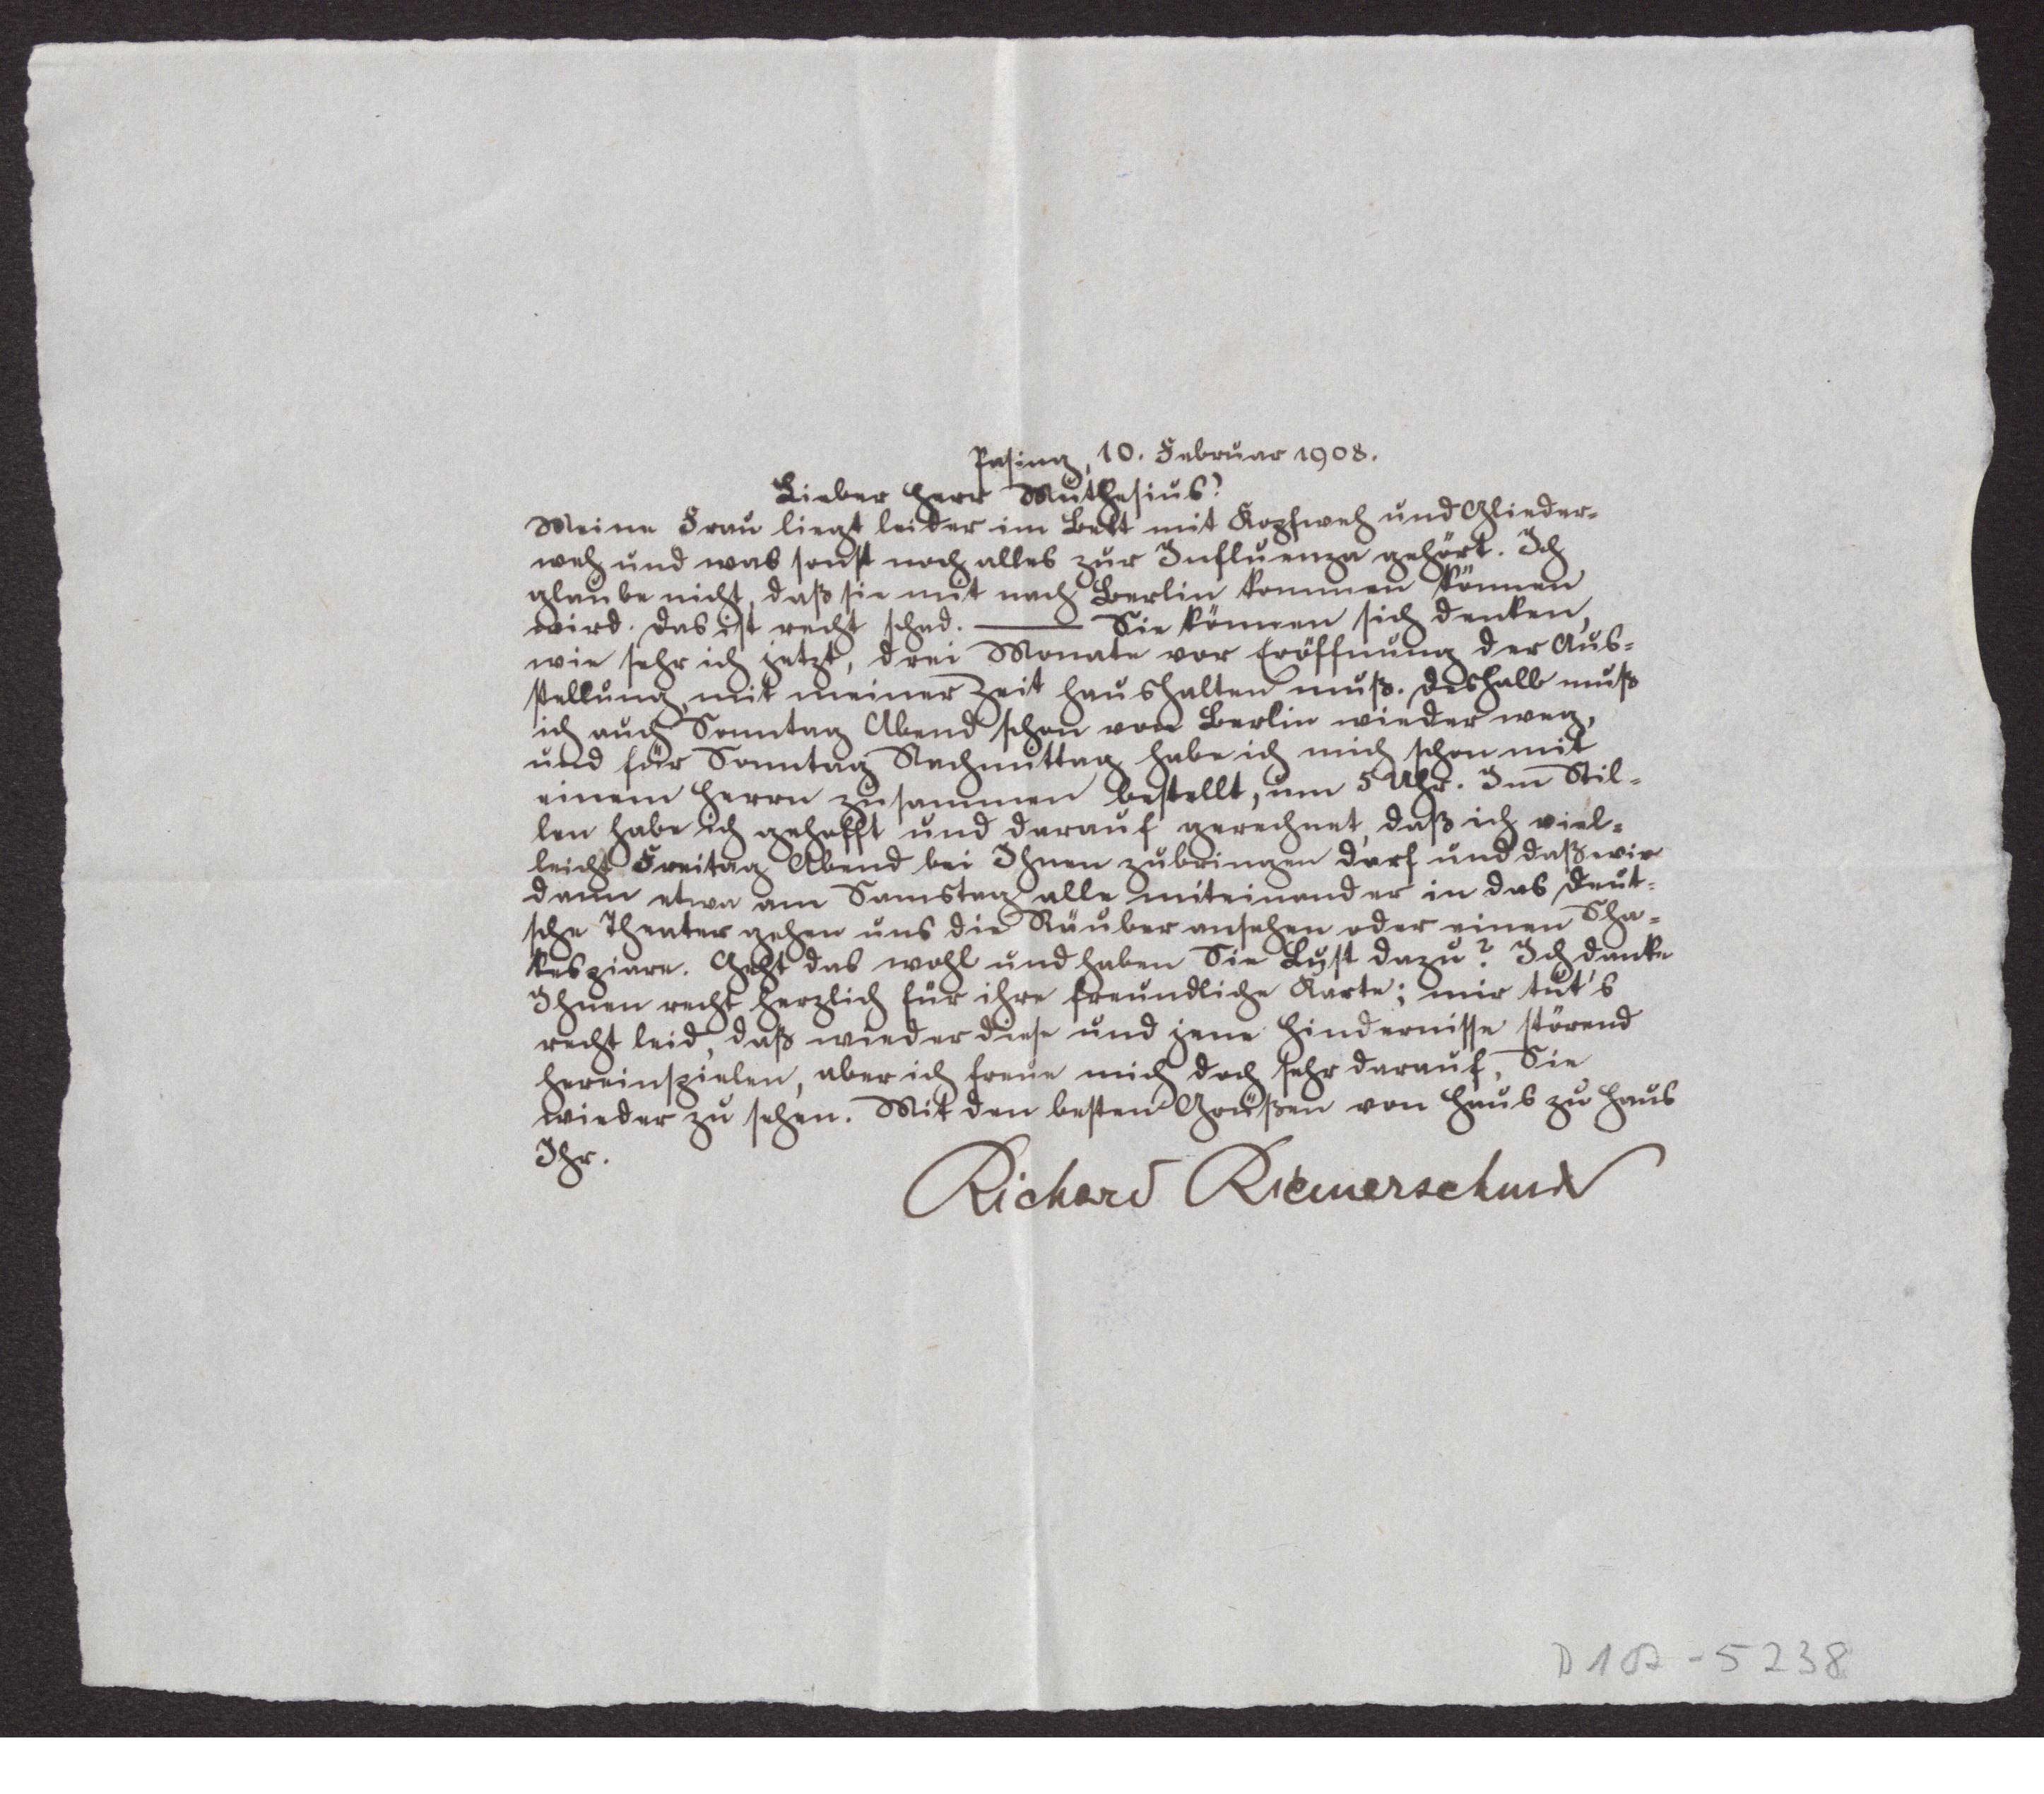 Pasing, 10. Februar 1908.
Lieber Herr Muthesius!
Meine Frau liegt leider im Bett mit Kopfweh und Glieder-
weh und was sonst noch alles zur Influenza gehört. Ich
glaube nicht, daß sie mit nach Berlin kommen können
wird. Das ist recht schad. — Sie können sich denken,
wie sehr ich jetzt, drei Monate vor Eröffnung der Aus-
stellung, mit meiner Zeit haushalten muß. Deshalb muß
ich auch Sonntag Abend schon von Berlin wieder weg,
und für Sonntag Nachmittag habe ich mich schon mit
einem Herrn zusammen bestellt, um 5 Uhr. Im Stil-
len habe ich gehofft und darauf gerechnet, daß ich viel-
leicht Freitag Abend bei Ihnen zubringen darf und daß wir
dann etwa am Samstag alle miteinander in das Deut-
sche Theater gehen uns die Räuber ansehen oder einen Sha-
kespiare. Geht das wohl und haben Sie Lust dazu? Ich danke
Ihnen recht herzlich für ihre freundliche Karte; mir tut's
recht leid, daß wieder diese und jene Hindernisse störend
hereinspielen, aber ich freue mich doch sehr darauf, Sie
wieder zu sehen. Mit den besten Grüßen von Haus zu Haus
Ihr.
Richard Riemerschmid
D 102 - 5238